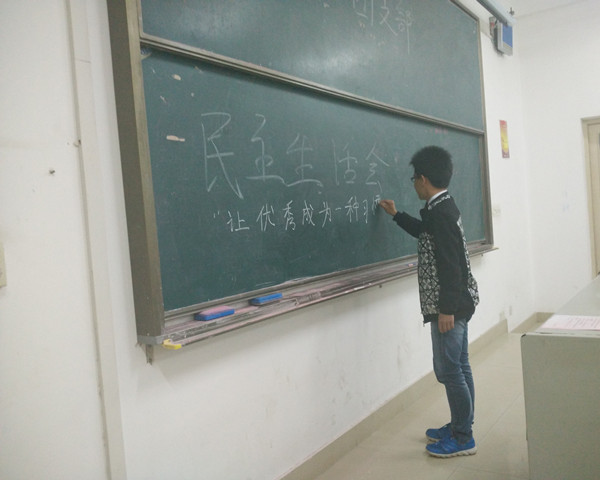 团支部
民主生活会
“让优秀成为一种习